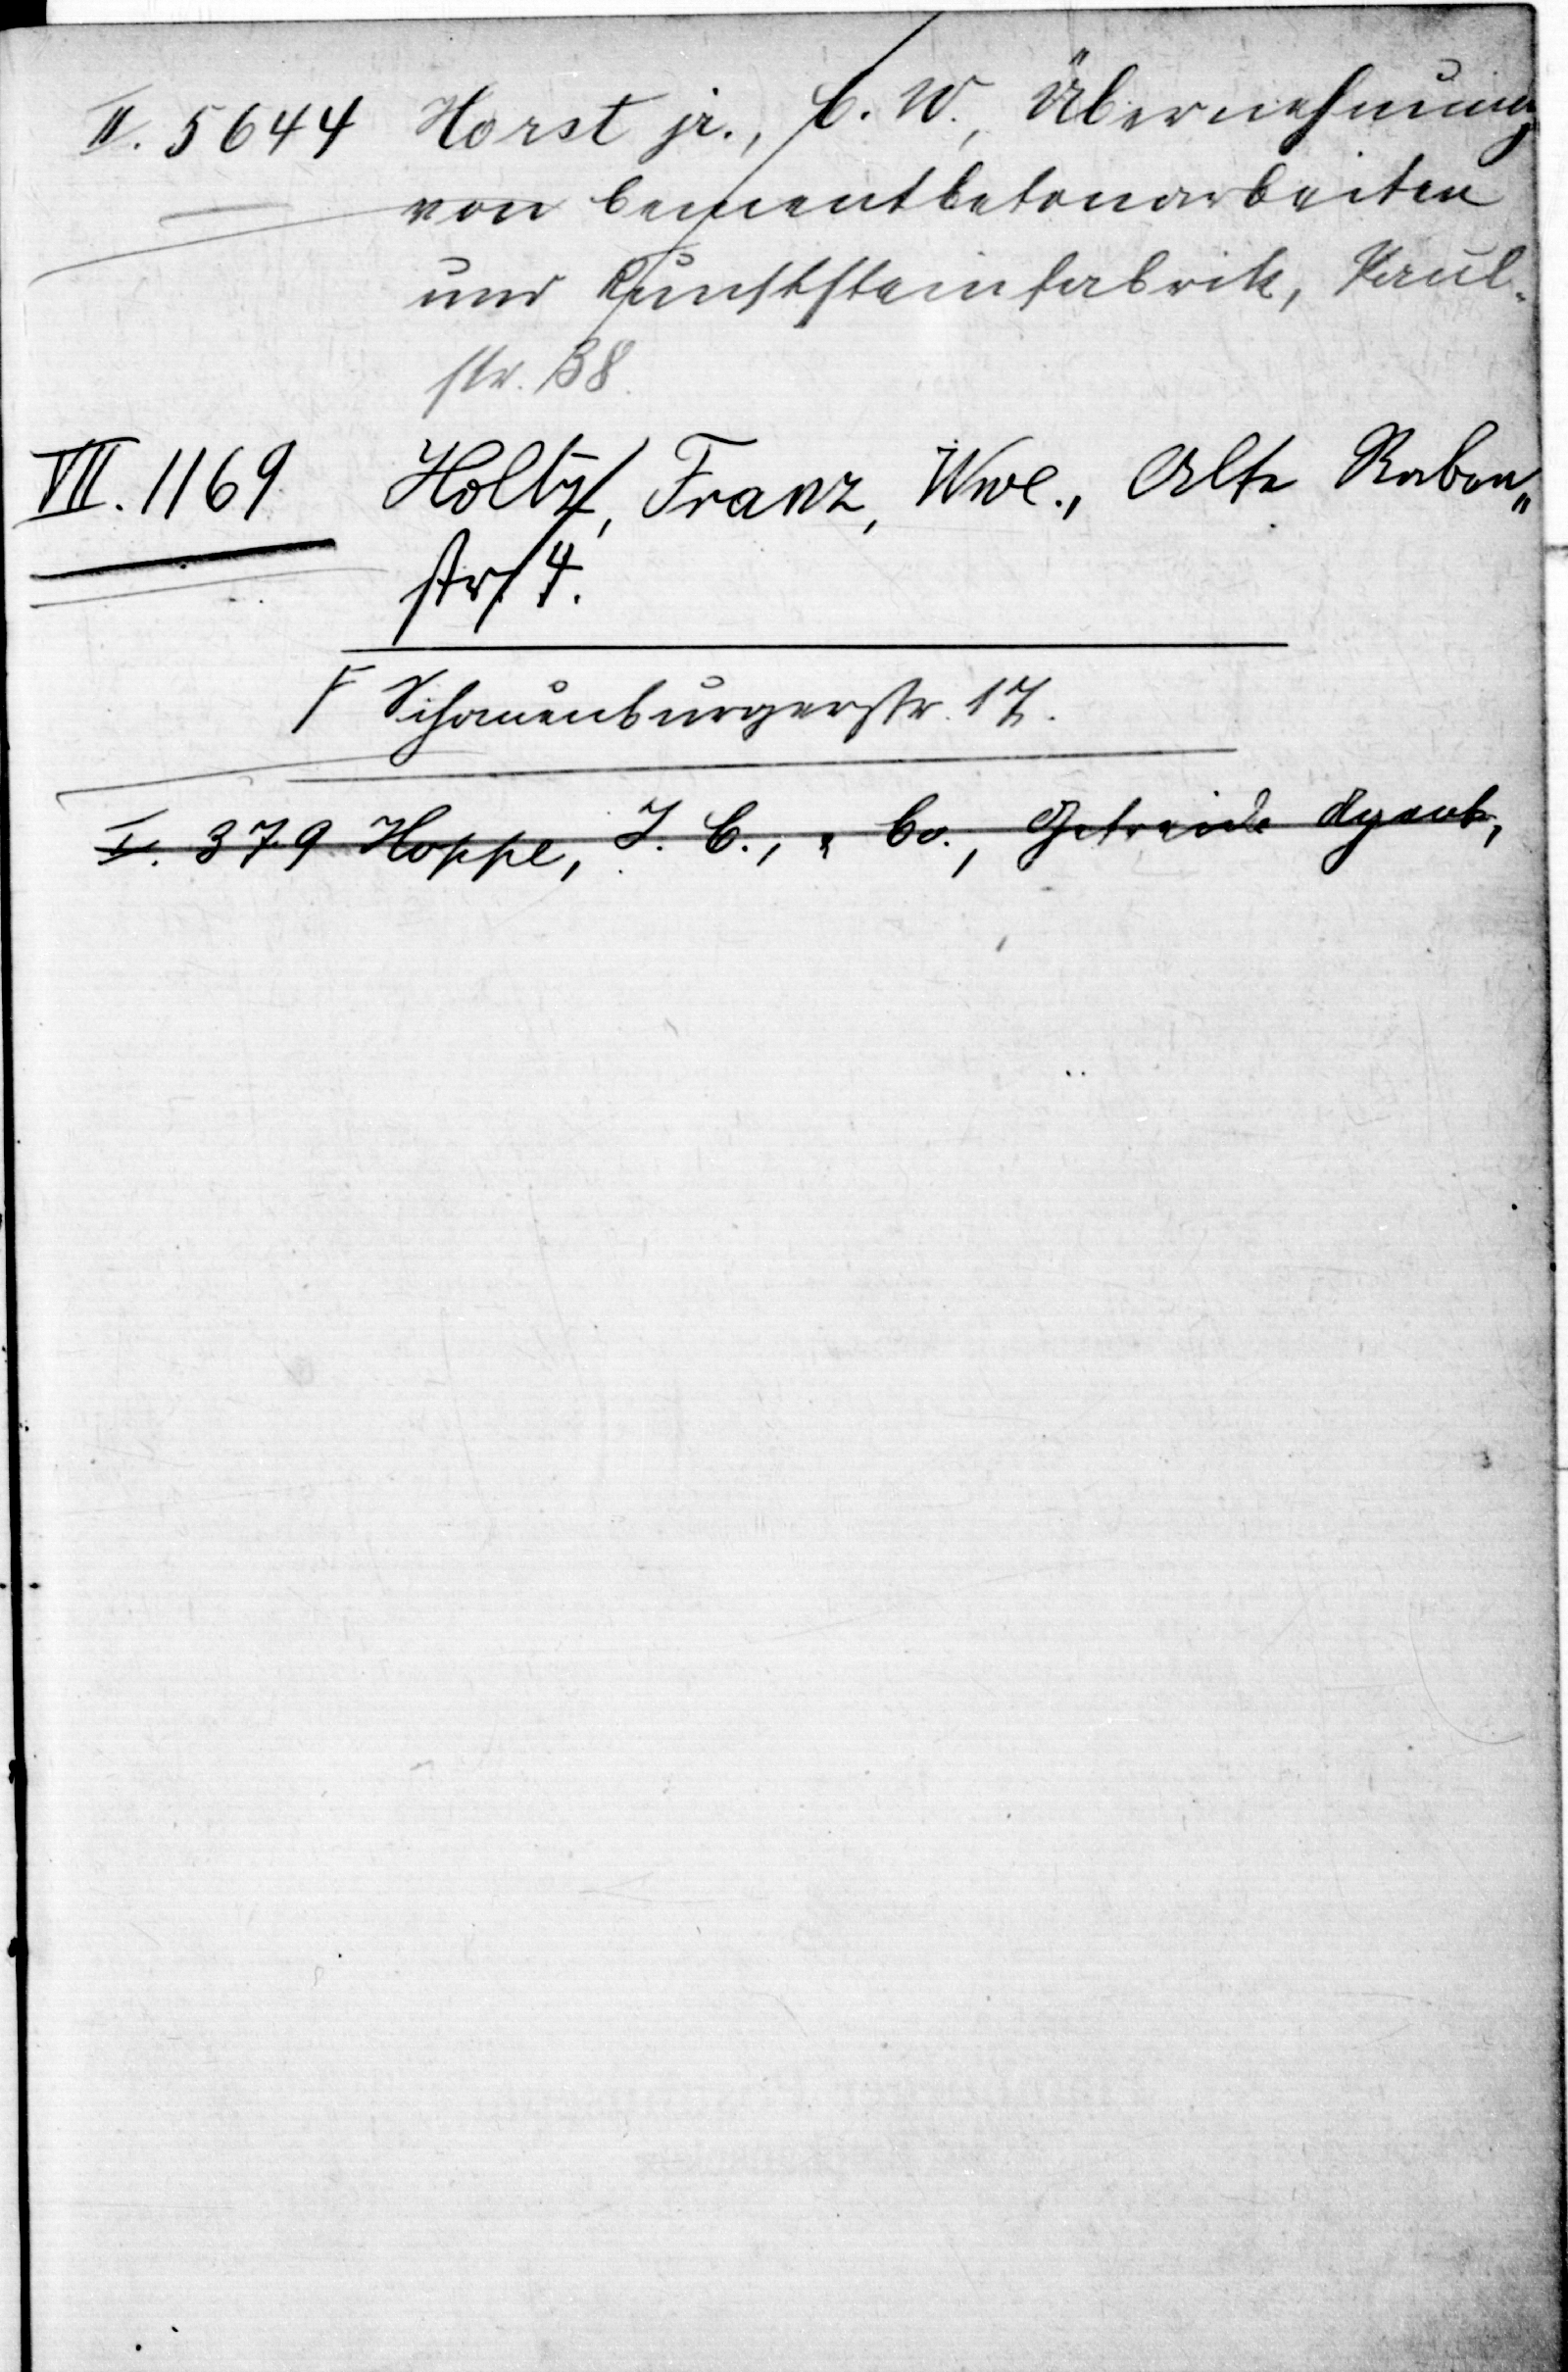 II. 5644 Horst jr., C. W., Übernehmung
von Cementbetonarbeiten
und Kunststeinfabrik, Paul-
str. 38.
VII. 1169 Holtz, Franz, Wwe., Alte Raben„
str. 4.
F Schauenburgerstr. 17.
I. 379 Hoppe, J. C., & Co., Getreide Agent,